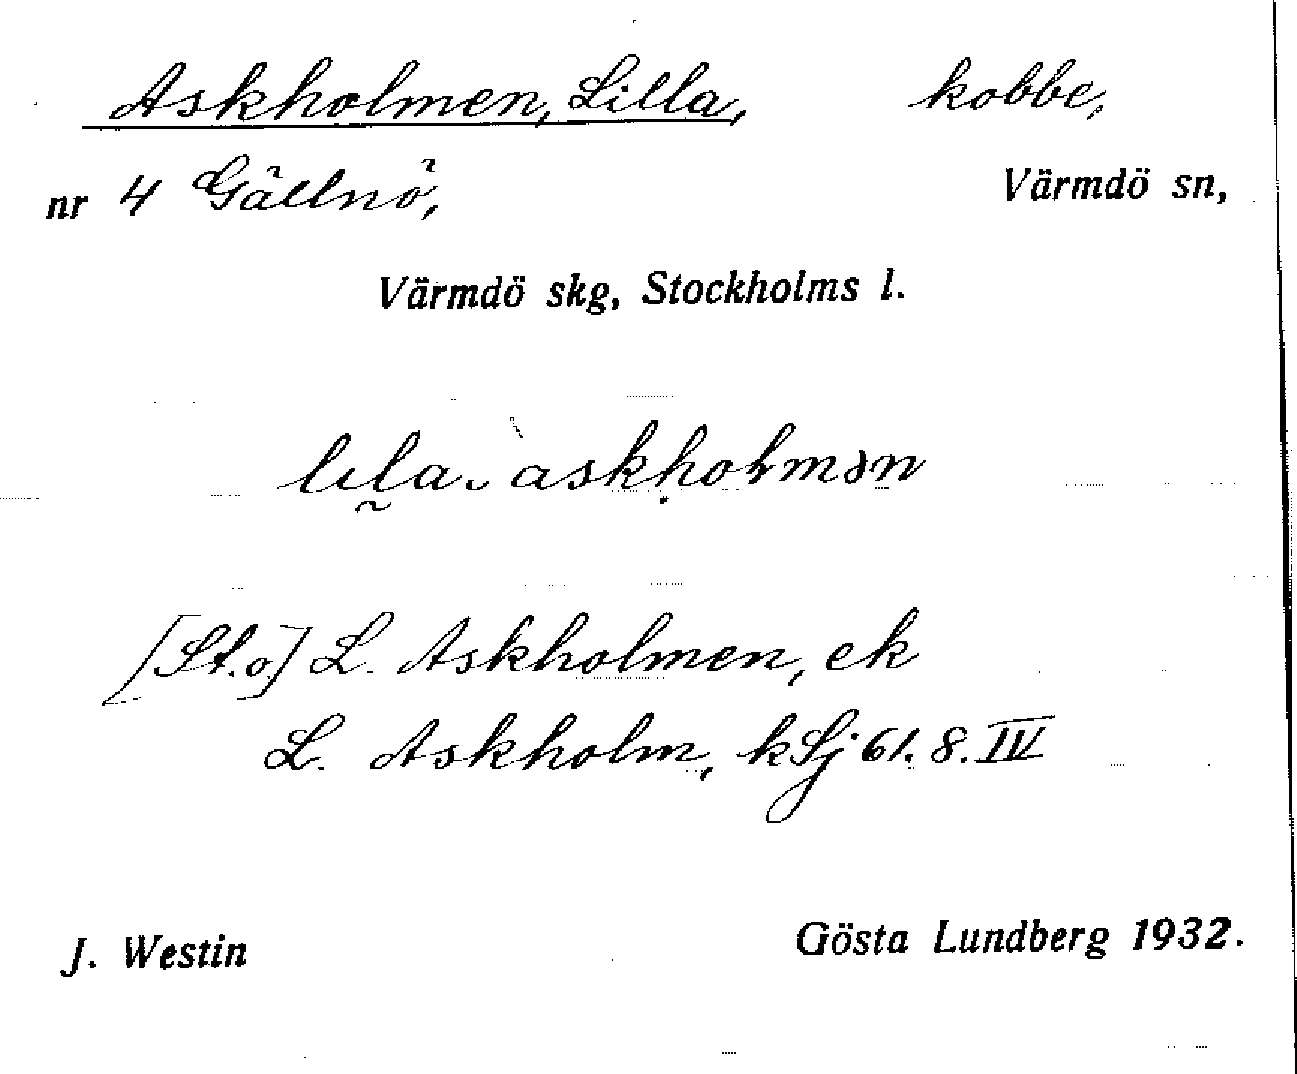 Askholmen, Lilla, kobbe,
nr 4 Gällnö, Värmdö sn,
Värmdö skg, Stockholms l.
lıla ˋaskholmən
[St.o] L. Askholmen, ek
L. Askholm, kSj 61. 8. IV
J. Westin Gösta Lundberg 1932.